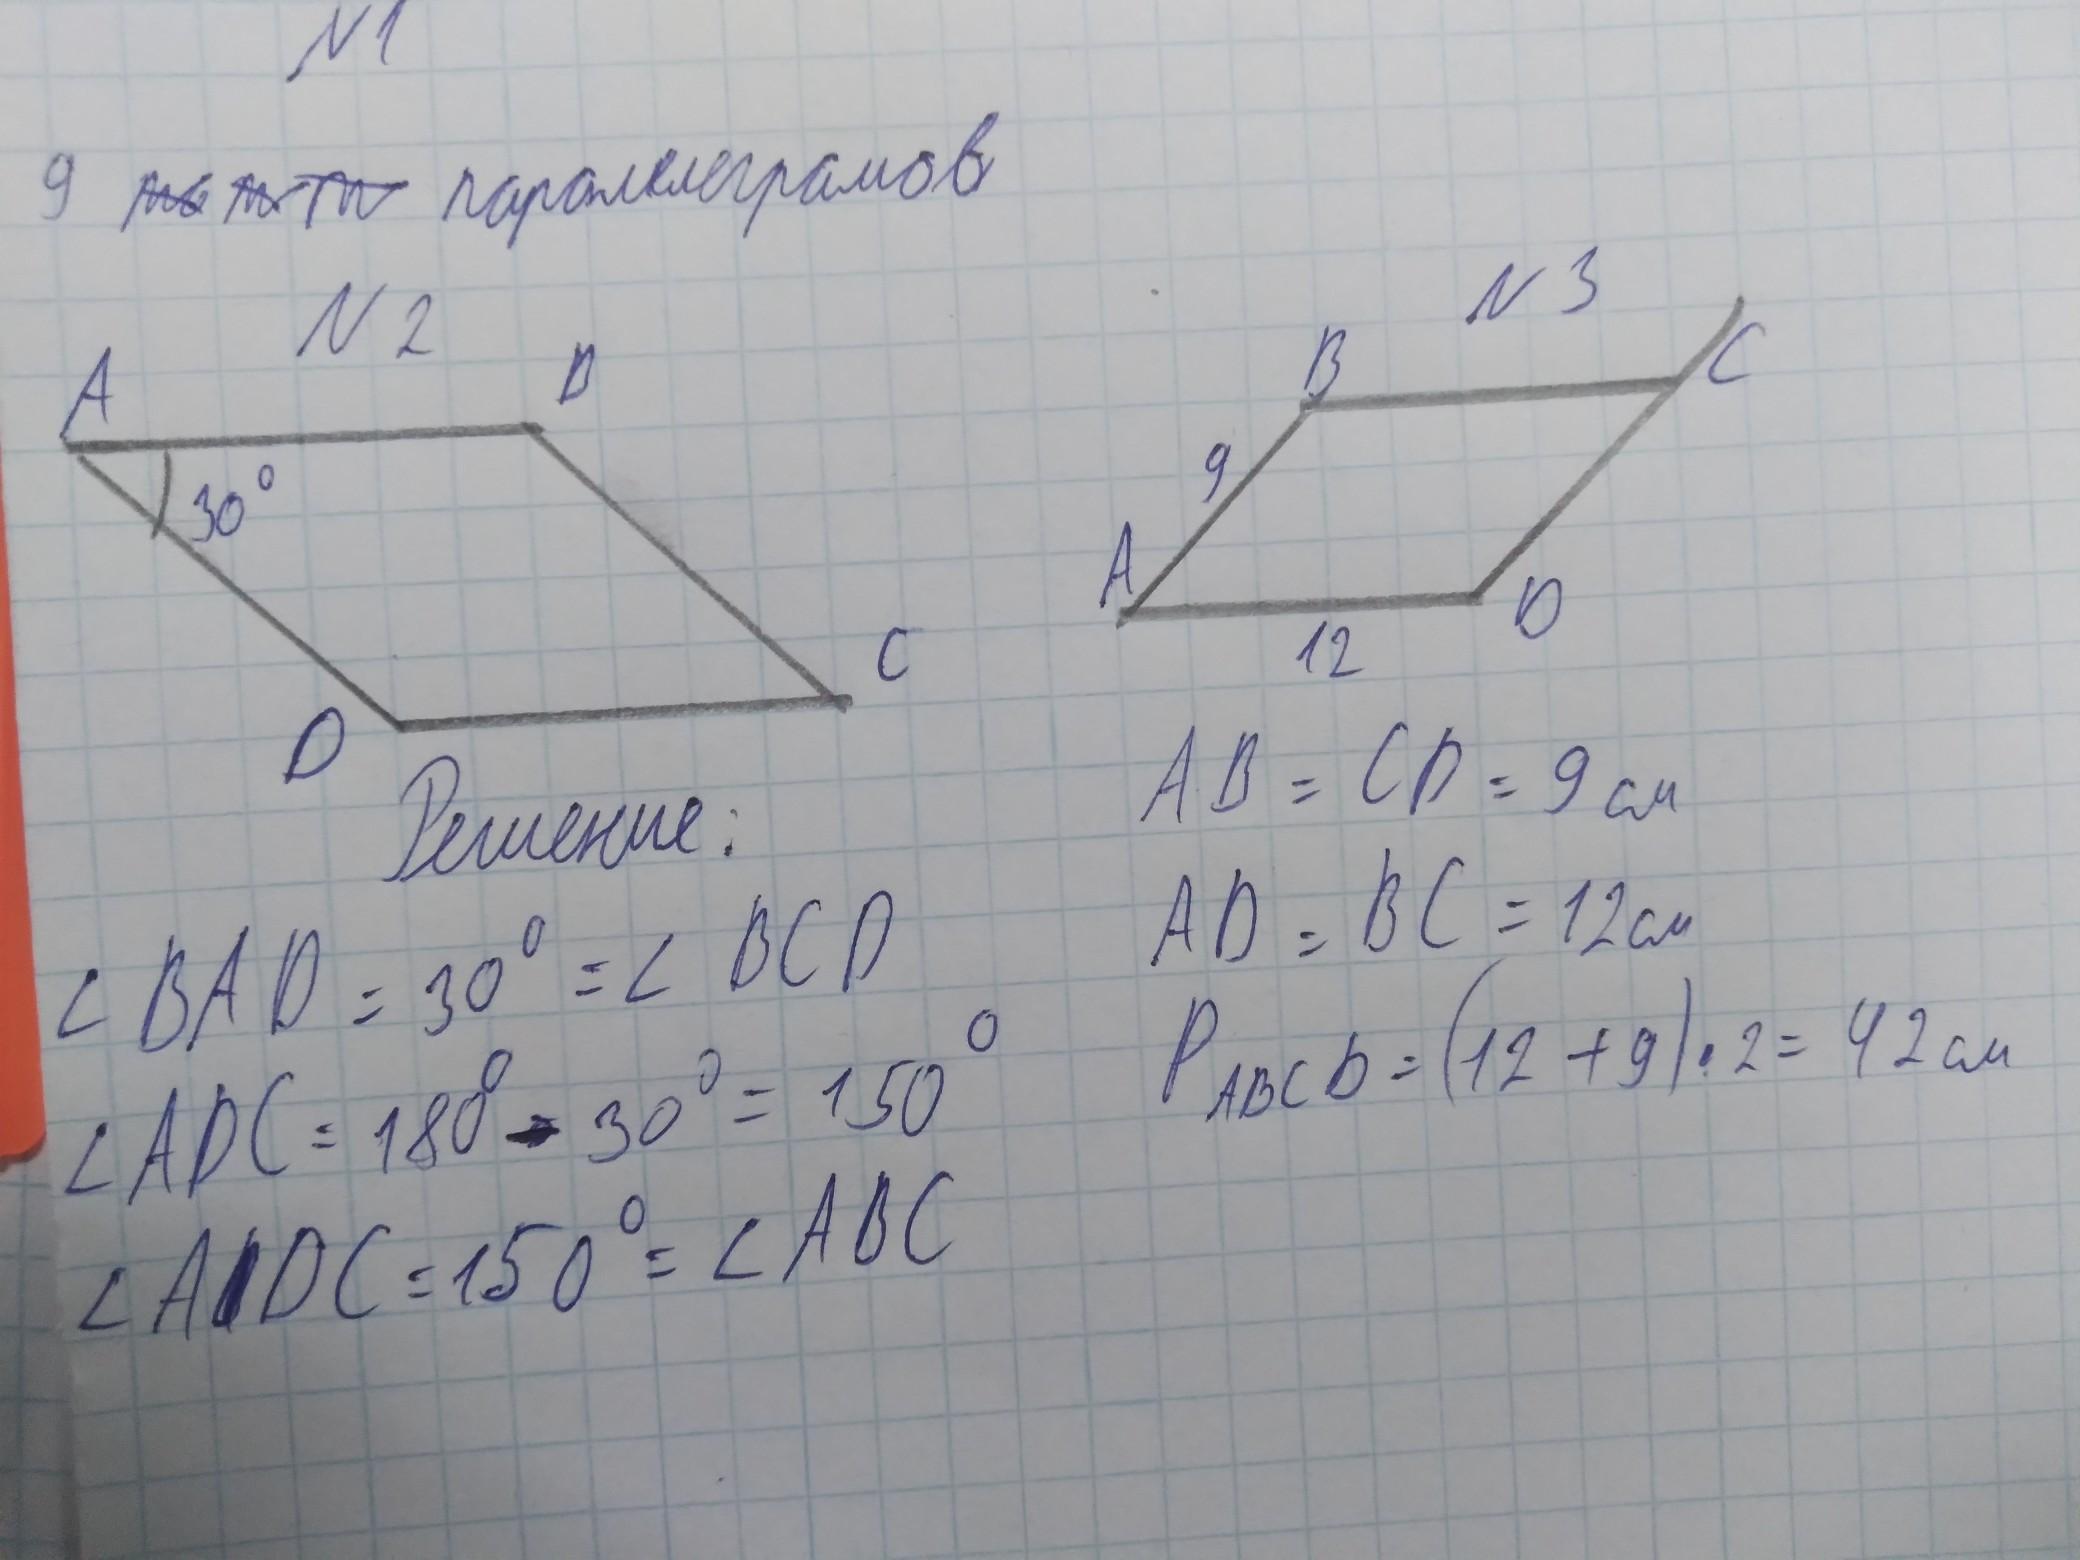 N1
9 паралелеграмов
N2
A B
30°
D C
Решение:
∠BAD = 30° = ∠BCD
∠ADC = 180° - 30° = 150°
∠ADC = 150° = ∠ABC
N3
B C
9
A D
12
AB = CD = 9 см
AD = BC = 12 см
P ABCD = (12 + 9) · 2 = 42 см